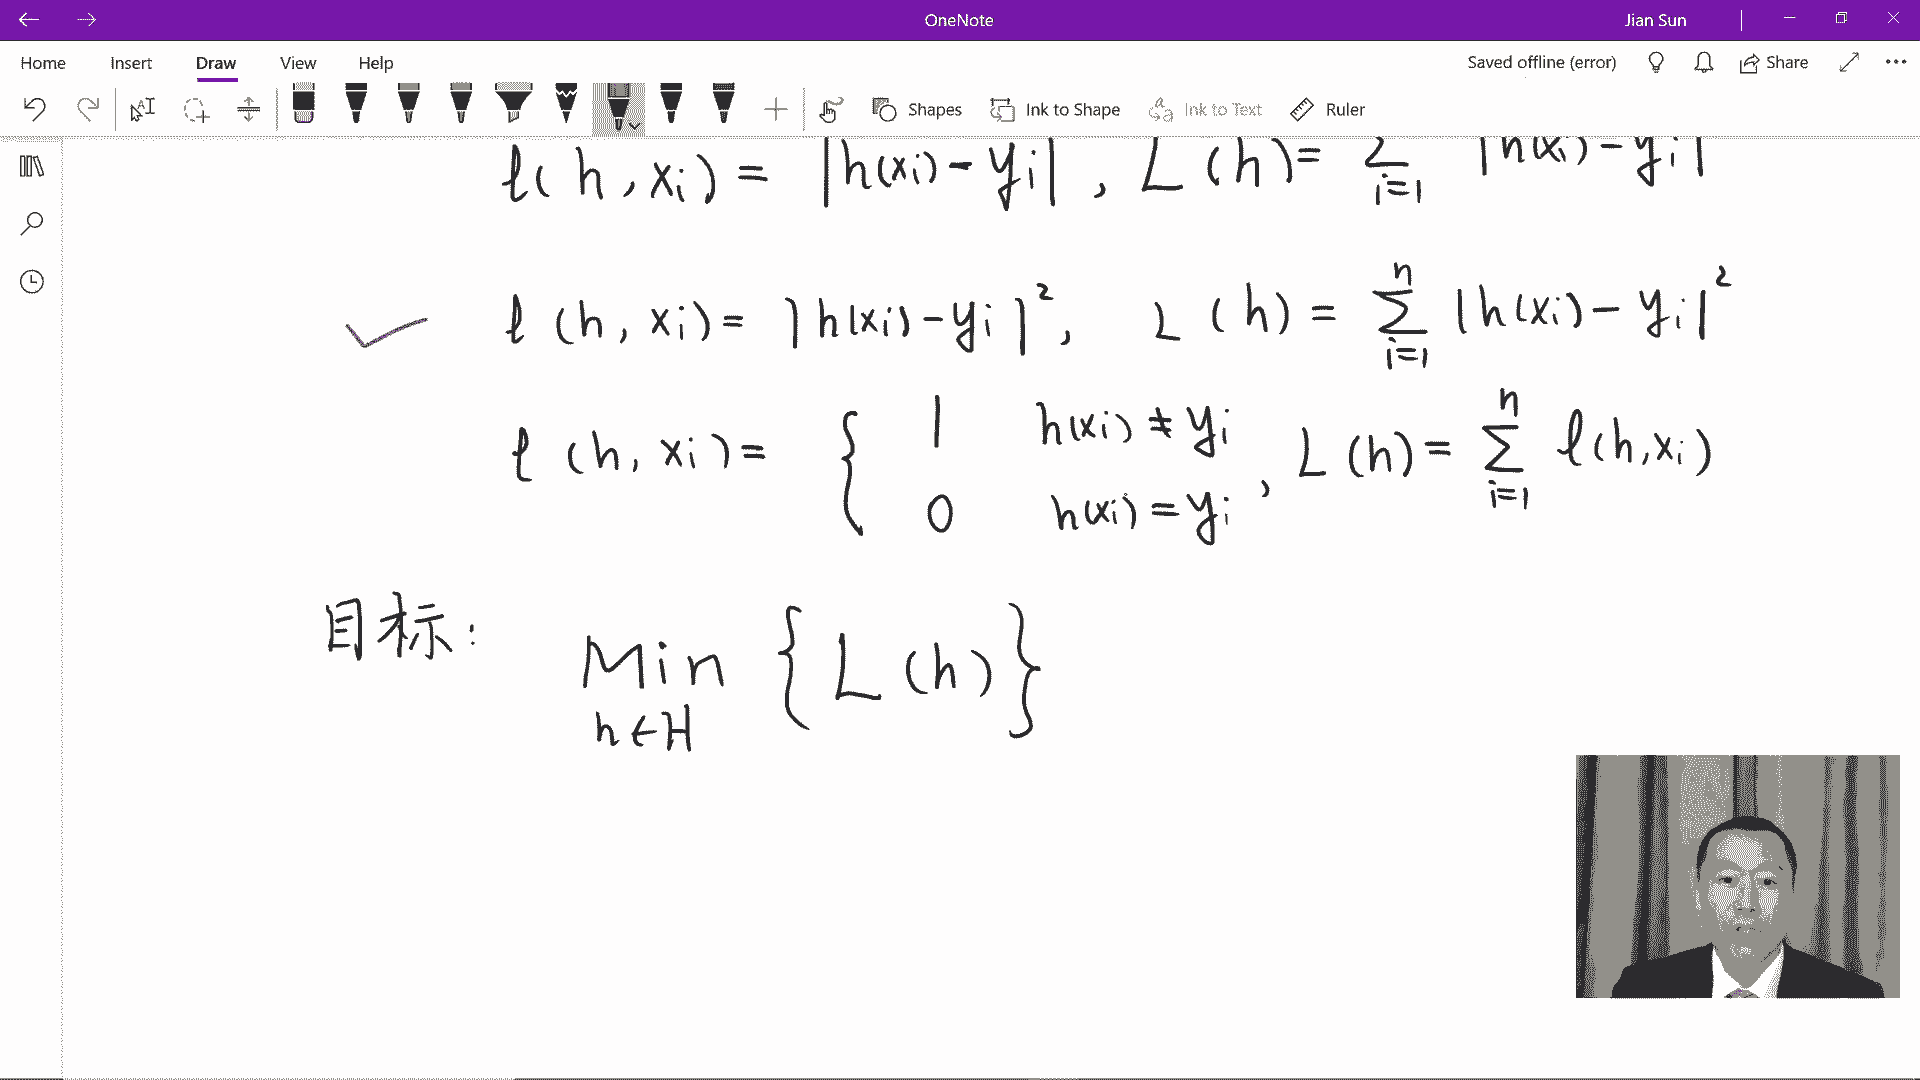 OneNote
Jian Sun
Home Insert Draw View Help
Saved offline (error) Share
Shapes Ink to Shape Ink to Text Ruler
ℓ(h,xᵢ) = |h(xᵢ)-yᵢ|, L(h) = ∑ᵢ₌₁ |h(xᵢ)-yᵢ|
ℓ(h,xᵢ) = |h(xᵢ)-yᵢ|², L(h) = ∑ᵢ₌₁ⁿ |h(xᵢ)-yᵢ|²
ℓ(h,xᵢ) = { 1 h(xᵢ) ≠ yᵢ
0 h(xᵢ) = yᵢ , L(h) = ∑ᵢ₌₁ⁿ ℓ(h,xᵢ)
目标: Min {L(h)}
h∈H